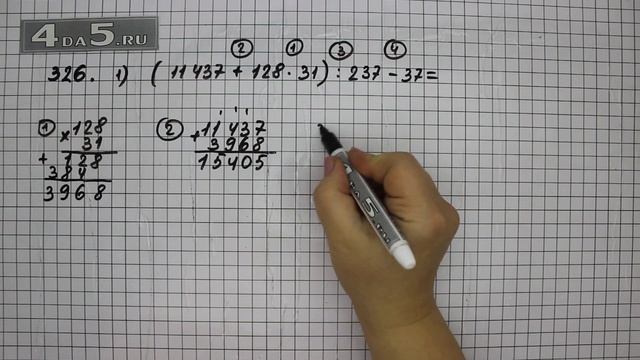 4DA5.RU
② ① ③ ④
326. 1) ( 11 437 + 128 · 31 ) : 237 - 37 =
① × 128
31
+ 128
384
3968
② + 11 437
3968
15405